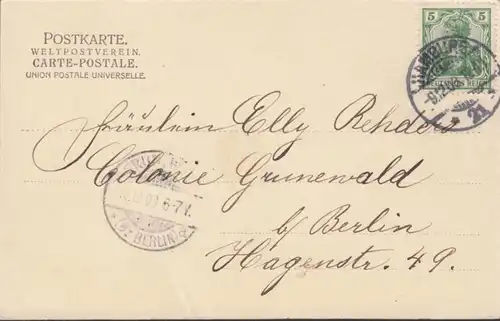 POSTKARTE.
WELTPOSTVEREIN.
CARTE-POSTALE.
UNION POSTALE UNIVERSELLE.
5 5
HAMBURG
21
Fräulein Elly Rehders
Colonie Grunewald
b/ Berlin
Hagenstr. 49.
6-7
BERLIN